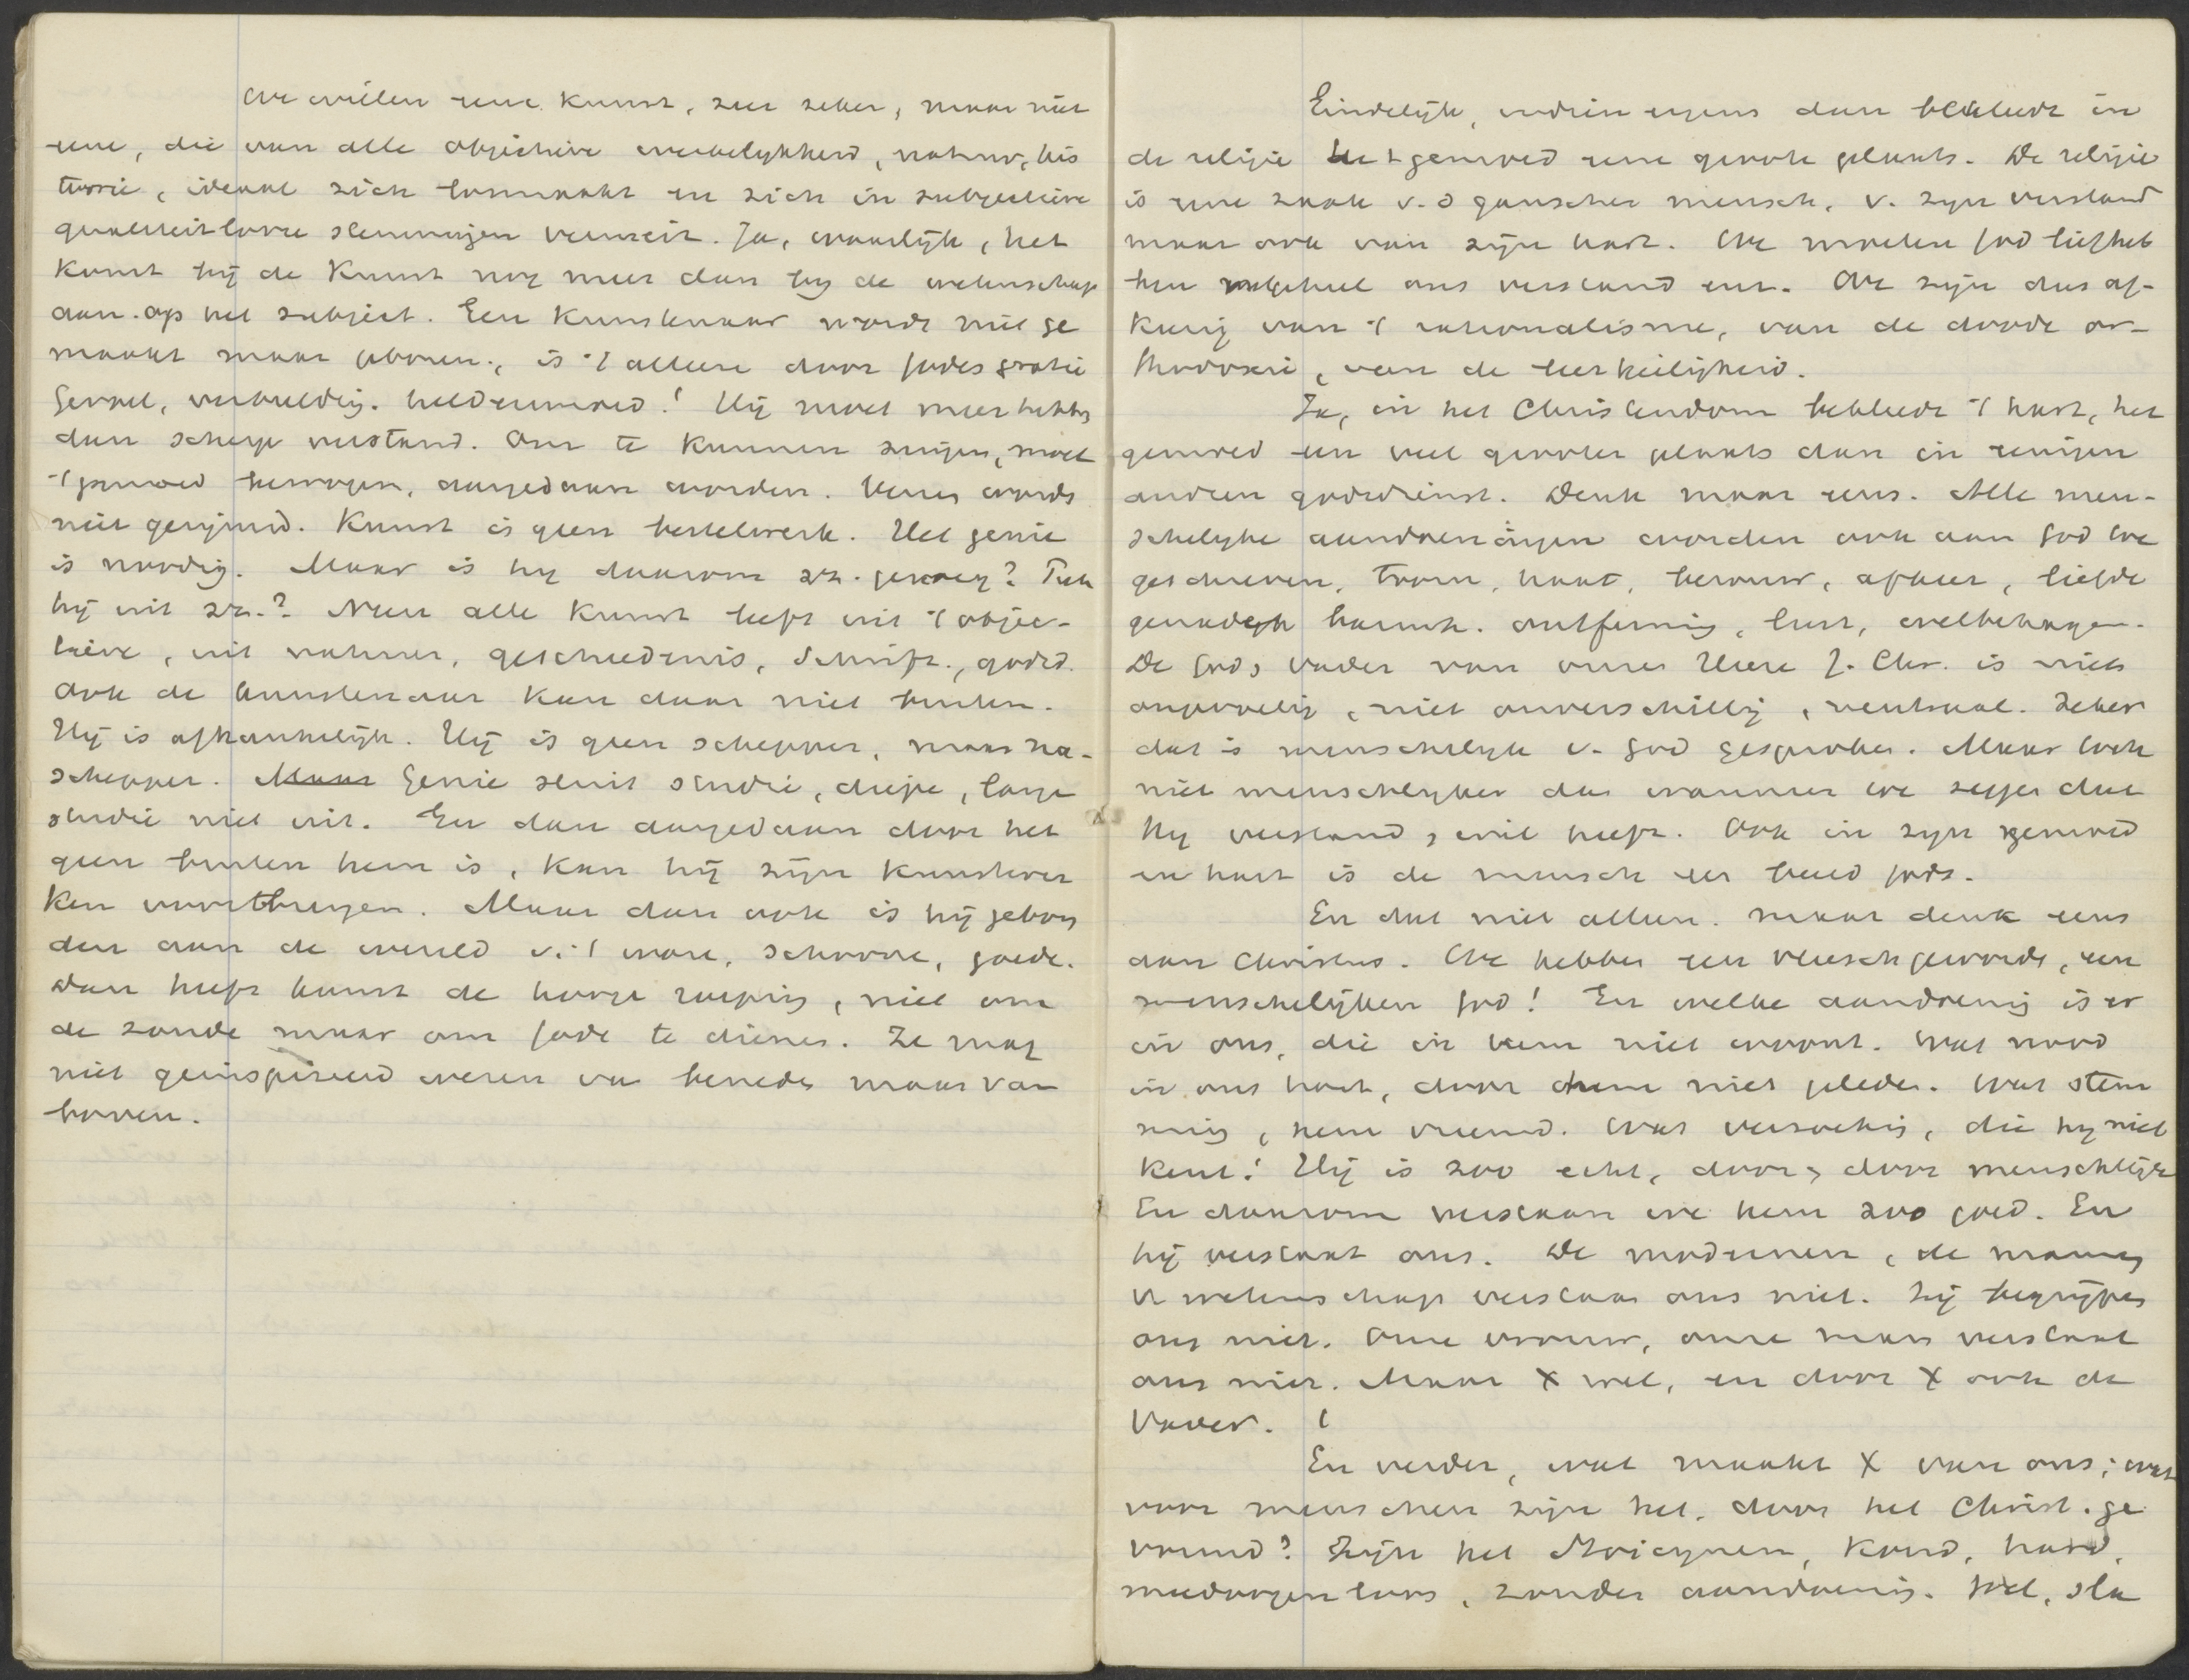 We willen eene kunst, zeer zeker, maar niet
eene, die van alle objectieve werkelykheid, natuur, his
torie, ideaal zich losmaakt en zich in subjectieve
qualiteitlooze stemmingen vermeit. Ja, waarlijk, het
komt bij de kunst nog meer dan by de wetenschap
aan op het subject. Een kunstenaar wordt niet ge
maakt maar geboren, is 't alleen door Gods gratie
Gevoel, verbeelding. heldenmoed! Hij moet meer hebben
dan scherp verstand. Om te kunnen zingen, moet
't gemoed bewogen, aangedaan worden. Verzen wordt
niet gerijmd. Kunst is geen bestelwerk. Het genie
is noodig. Maar is hy daarom zz. genoeg? Put
hij uit zz.? Neen alle kunst leeft uit 't objec-
tieve, uit natuur, geschiedenis, Schrift, godsd.
Ook de kunstenaar kan daar niet buiten.
Hij is afhankelijk. Hij is geen schepper, maar na-
schepper. Maar Genie sluit studie, diepe, lange
studie niet uit. En dan aangedaan door het
geen buiten hem is, kan hij zijn kunstwer
ken voortbrengen. Maar dan ook is hij gebon
den aan de wereld v. 't ware, schoone, goede.
Dan heeft kunst de hooge roeping, niet om
de zonde maar om Gode te dienen. Ze mag
niet geinspireerd wezen van beneden maar van
boven.
Eindelijk, indien ergens dan bekleedt in
de religie het gemoed eene groote plaats. De religie
is eene zaak v. d ganschen mensch, v. zyn verstand
maar ook van zijn hart. We moeten God liefheb
ben met geheel ons verstand enz. We zijn dus af-
keerig van 't rationalisme, van de doode or-
thodoxie, van de leerheiligheid.
Ja, in het Christendom bekleedt 't hart, het
gemoed een veel grooter plaats dan in eenigen
anderen godsdienst. Denk maar eens. Alle men-
schelyke aandoeningen worden ook aan God toe
geschreven, toorn, haat, berouw, afkeer, liefde
genade barmh. ontferming, lust, welbehagen.
De God, Vader van onzen Heere J. Chr. is niet
ongevoelig, niet onverschillig, neutraal. Zeker
dat is menschelyk v. God gesproken. Maar toch
niet menschelyker dan wanneer we zeggen dat
Hy verstand, wil heeft. Ook in zyn gemoed
en hart is de mensch een beeld Gods.
En dat niet alleen. maar denk eens
aan Christus. We hebben een vleeschgeworden, een
menschelijken God! En welke aandoening is er
in ons, die in hem niet woont. Wat nood
in ons hart, door hem niet geleden. Wat stem
ming, hem vreemd. Wat verzoeking, die hy niet
kent! Hij is zoo echt, door, door menschelijk
En daarom verstaan we hem zoo goed. En
hij verstaat ons. De modernen, de mannen
v wetenschap verstaan ons niet. Zij begrijpen
ons niet. Onze vrouw, onze man verstaat
ons niet. Maar X wel, en door X ook de
Vader.
En verder, wat maakt X van ons; wat
voor menschen zijn het, door het Christ. ge
vormd? Zijn het Stoicynen, koud, hard,
meedoogenloos, zonder aandoening. Wel, sla